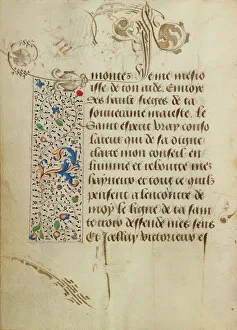 montes Je me resio
se de ton aide Enuoye
des haulz sieges de ta
souueraine maieste Le
Saint esperit vray conso
lateur qui de sa digne
clarte mon conseil en
lumine et reboute mes
hayneux et tous ce quilz
pensent a lencontre de
moy le signe de ta sain
te croix deffende mes sens
Et